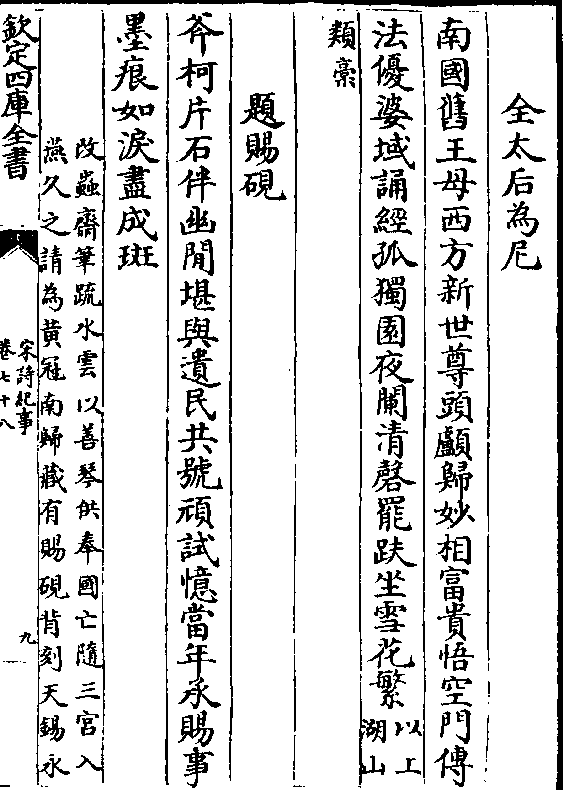 全太后為尼
南國舊王母西方新世尊頭顱歸妙相富貴悟空門傳
法優婆域誦經孤獨園夜闌清磬罷趺坐雪花繁以上湖山
類藁
題賜硯
斧柯片石伴幽閒堪與遺民共號頑試憶當年承賜事
墨痕如淚盡成斑
改蟲齋筆疏水雲以善琴供奉國亡隨三宮入
燕久之請為黃冠南歸藏有賜硯背刻天錫永
欽定四庫全書
宋詩紀事
卷七十八
九